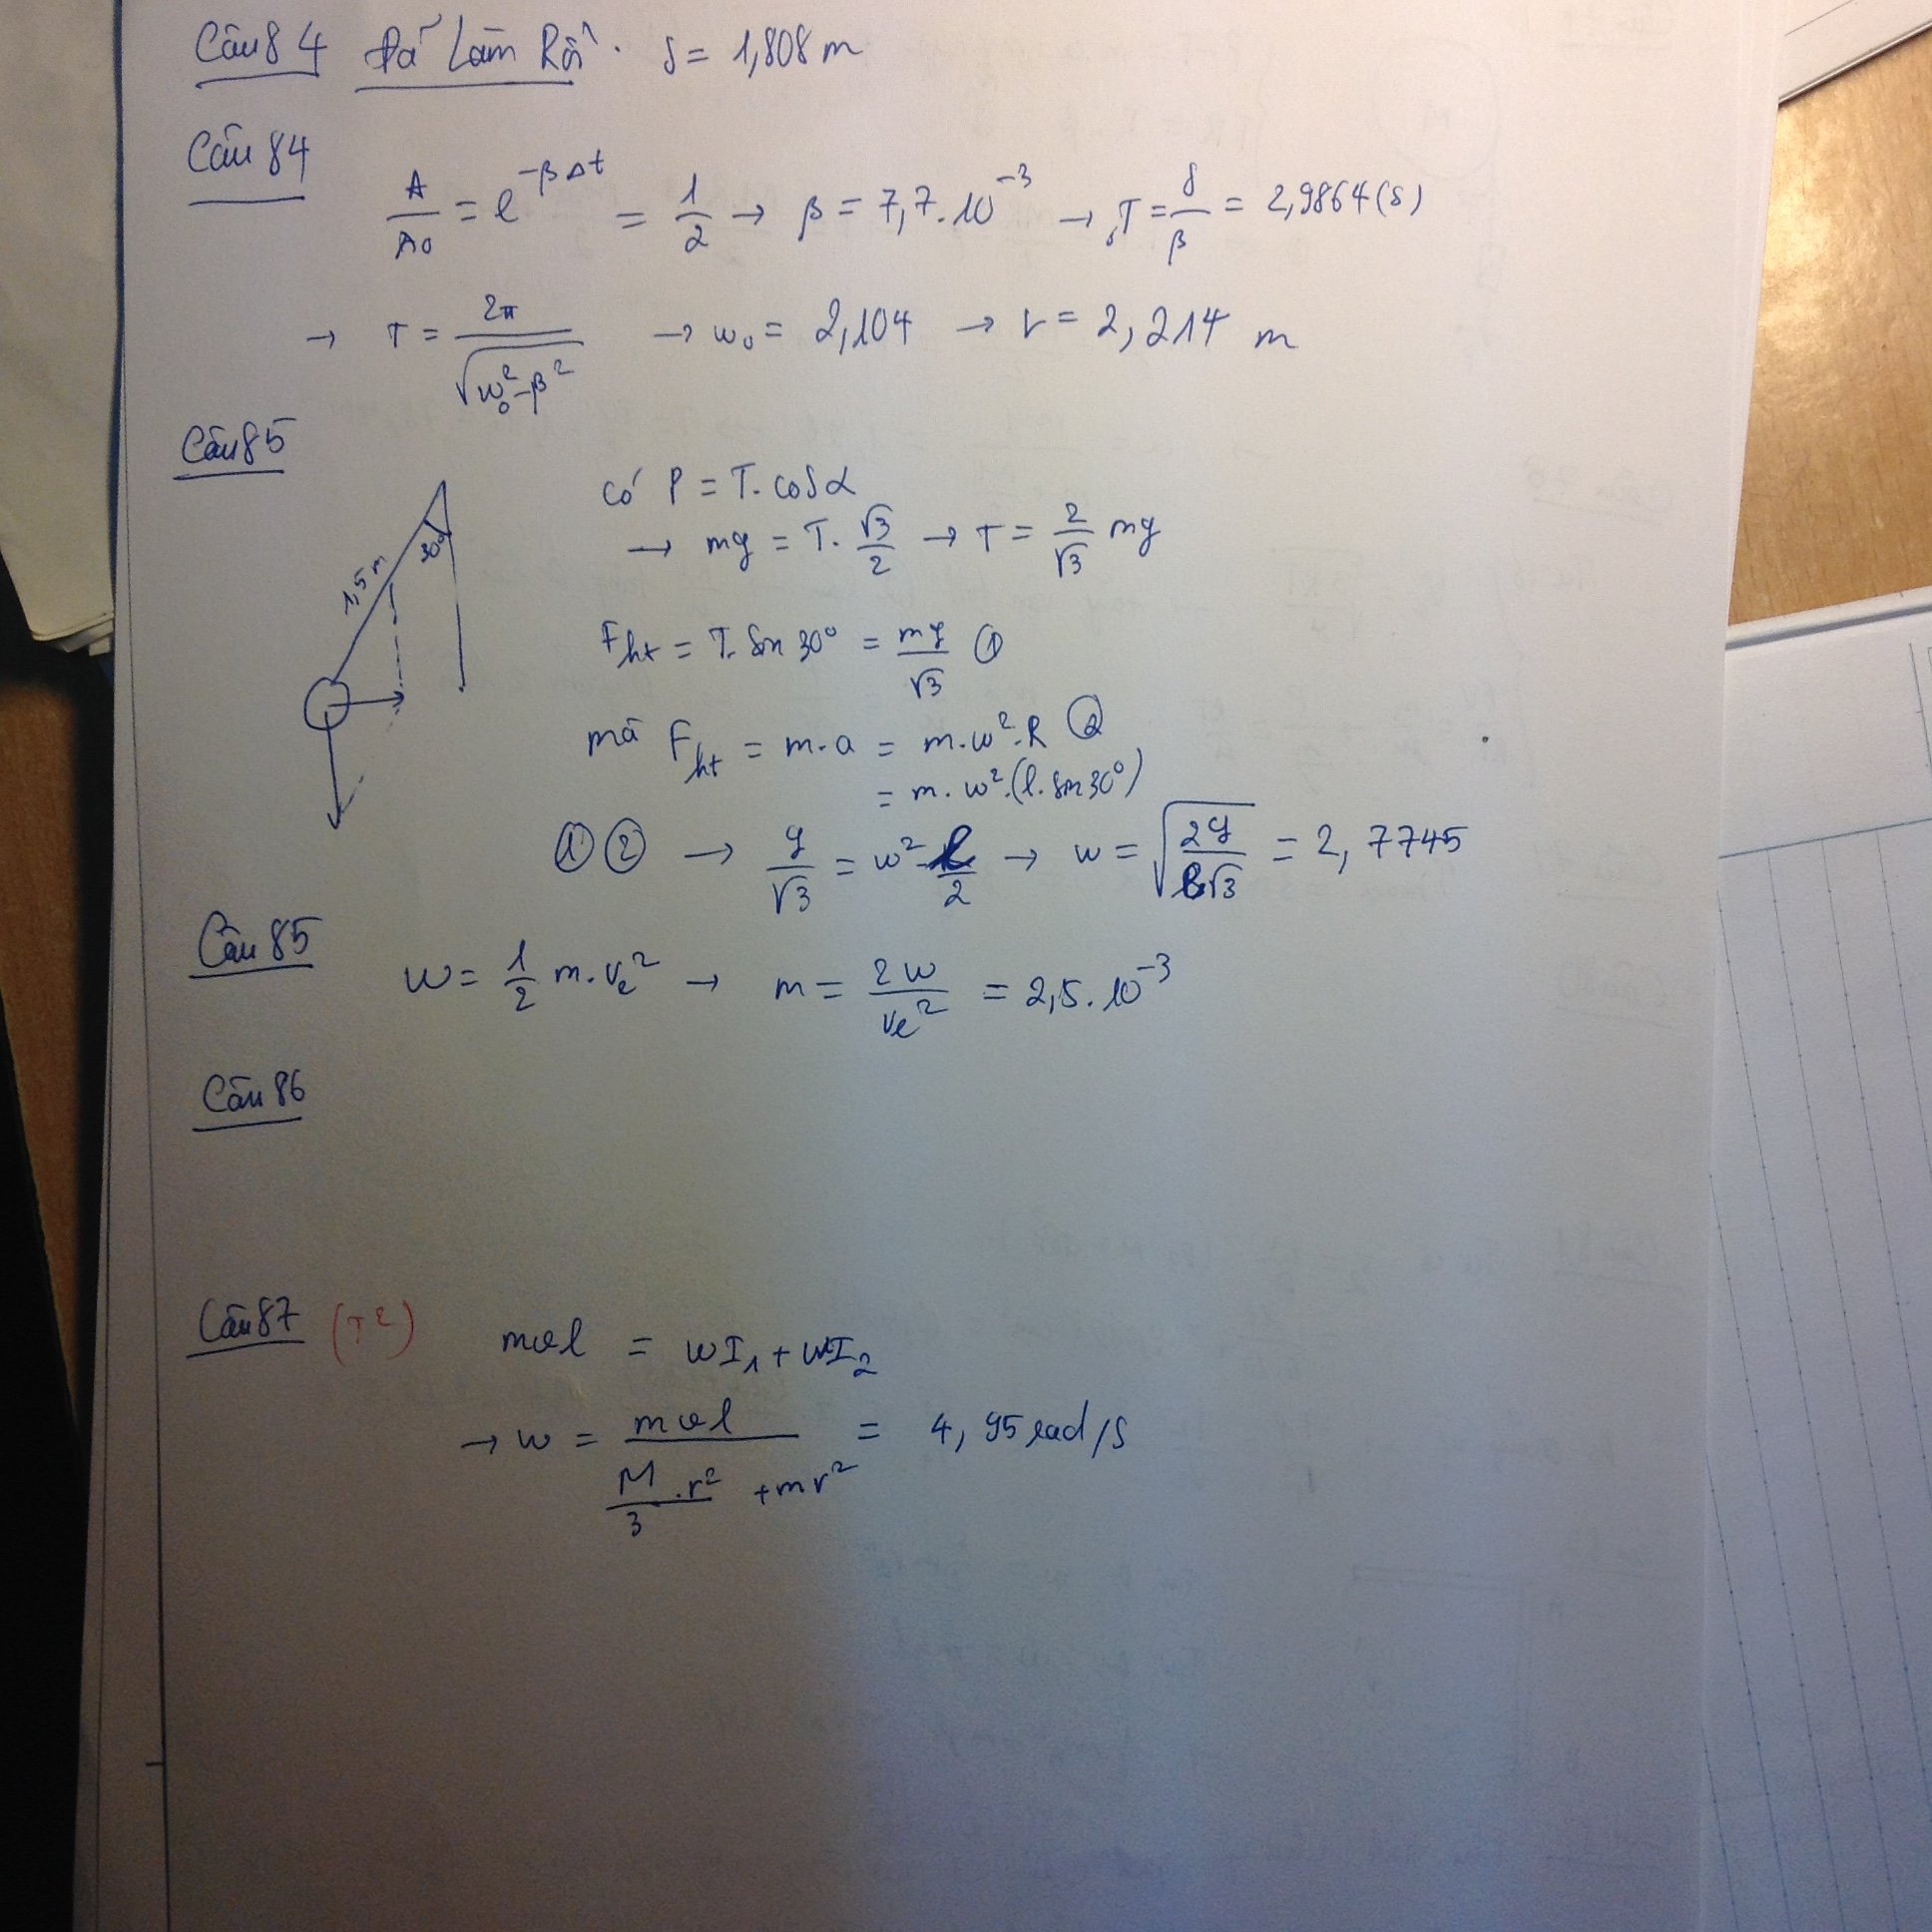 Câu 84 Đã Làm Rồi. S = 1,808 m
Câu 84
A/A0 = e^(-βΔt) = 1/2 → β = 7,7.10^-3 → T = δ/β = 2,9864 (s)
→ T = 2π/√(ω0² - β²) → ω0 = 2,104 → r = 2,214 m
Câu 85
1,5 m
30°
có P = T. cosα
→ mg = T. √3/2 → T = 2/√3 mg
Fht = T. Sin 30° = mg/√3 ①
mà Fht = m.a = m.ω².R ②
= m.ω².(l.sin30°)
① ② → g/√3 = ω² l/2 → ω = √(2g/l√3) = 2,7745
Câu 85
W = 1/2 m.ve² → m = 2W/ve² = 2,5.10^-3
Câu 86
Câu 87 (T²)
mvl = ωI1 + ωI2
→ ω = mvl/(M/3 .r² + mr²) = 4,95 rad/s